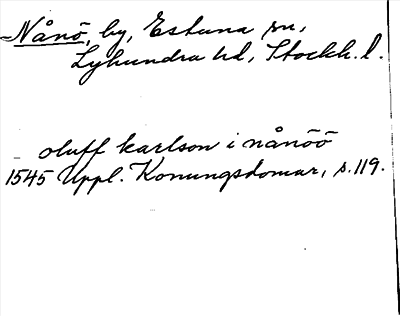 Nånö, by, Estuna sn,
Lyhundra hd, Stockh. l.
oluff karlson i nånöö
1545 Uppl. Konungsdomar, s. 119.